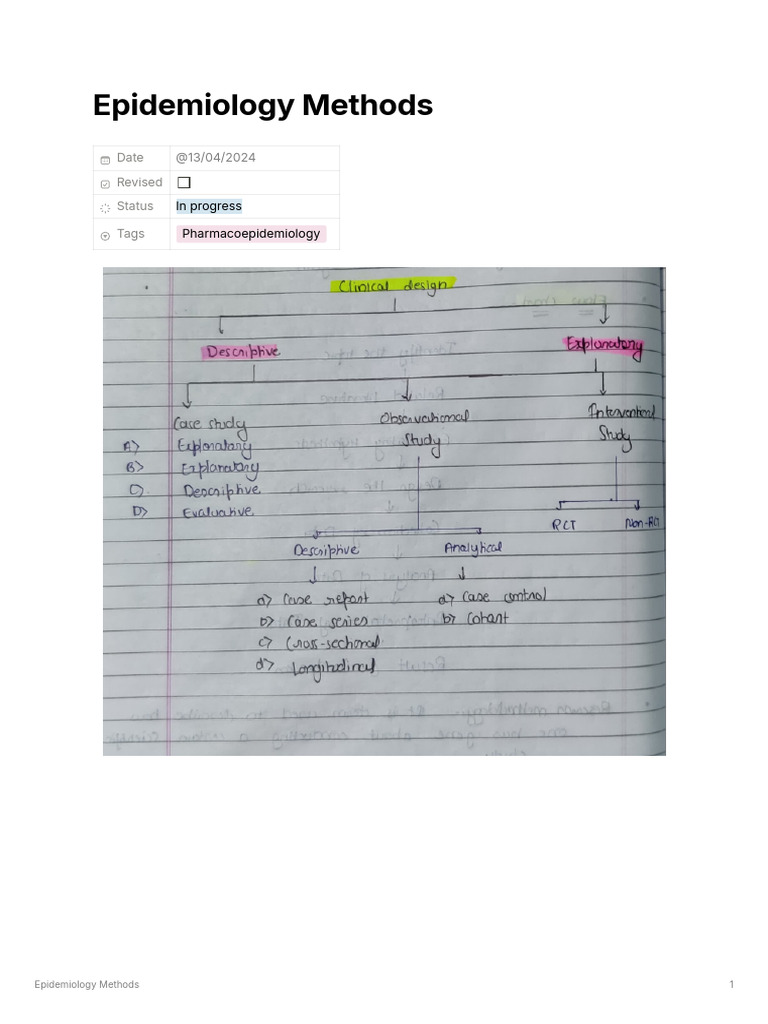 Epidemiology Methods
Date @13/04/2024
Revised
Status In progress
Tags Pharmacoepidemiology
Clinical design
Descriptive Explanatory
Case study Observational Study Interventional Study
A) Exploratory
B) Explanatory
C) Descriptive
D) Evaluative
RCT Non-RCT
Descriptive Analytical
a) Case report a) Case control
b) Case series b) Cohort
c) Cross-sectional
d) Longitudinal
Epidemiology Methods 1